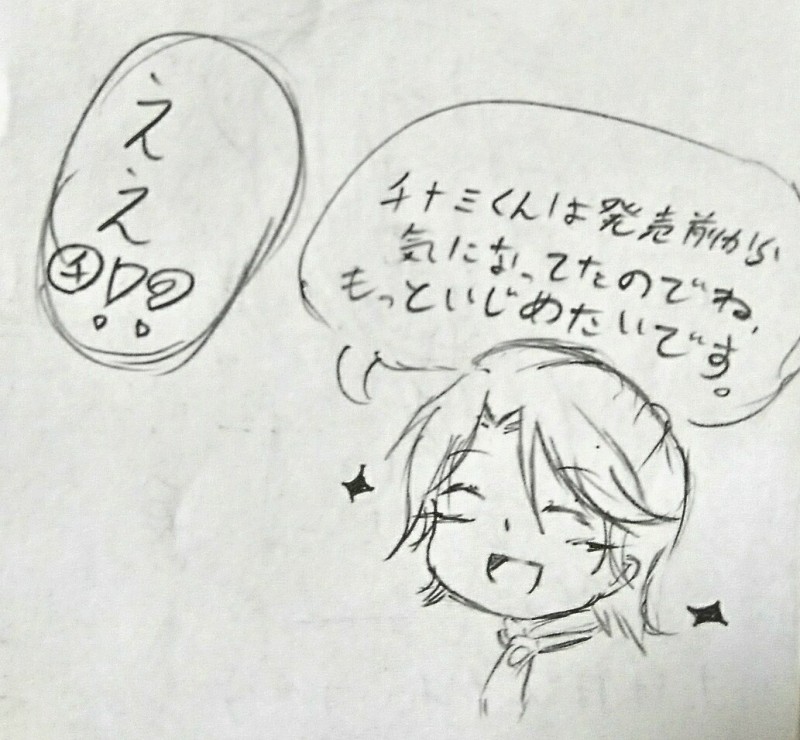 チナミくんは発売前から
気になってたのでね、
もっといじめたいです。
ええ